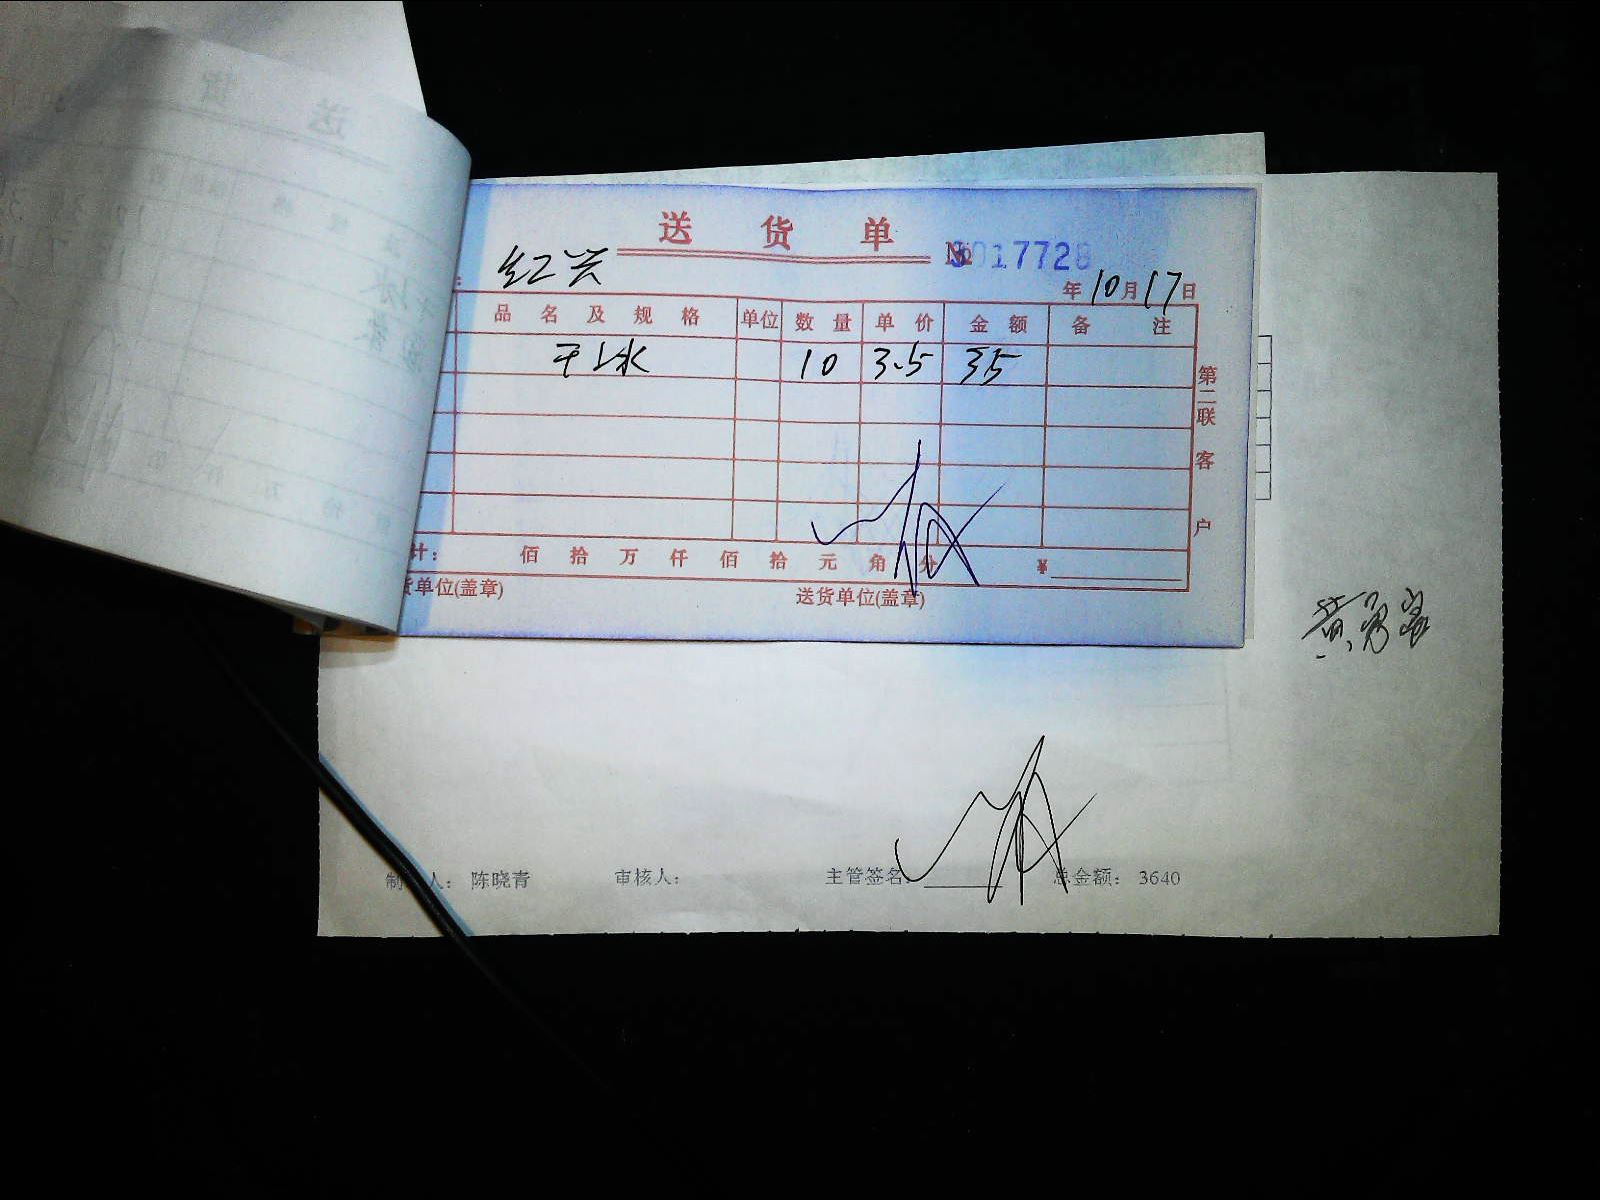 送货单
№ 0017728
红兴
年10月17日
品名及规格 单位 数量 单价 金额 备注
干冰 10 3.5 35
第二联 客户
计： 佰 拾 万 仟 佰 拾 元 角 分 ¥
货单位(盖章) 送货单位(盖章)
制 人： 陈晓青 审核人： 主管签名： 总金额： 3640